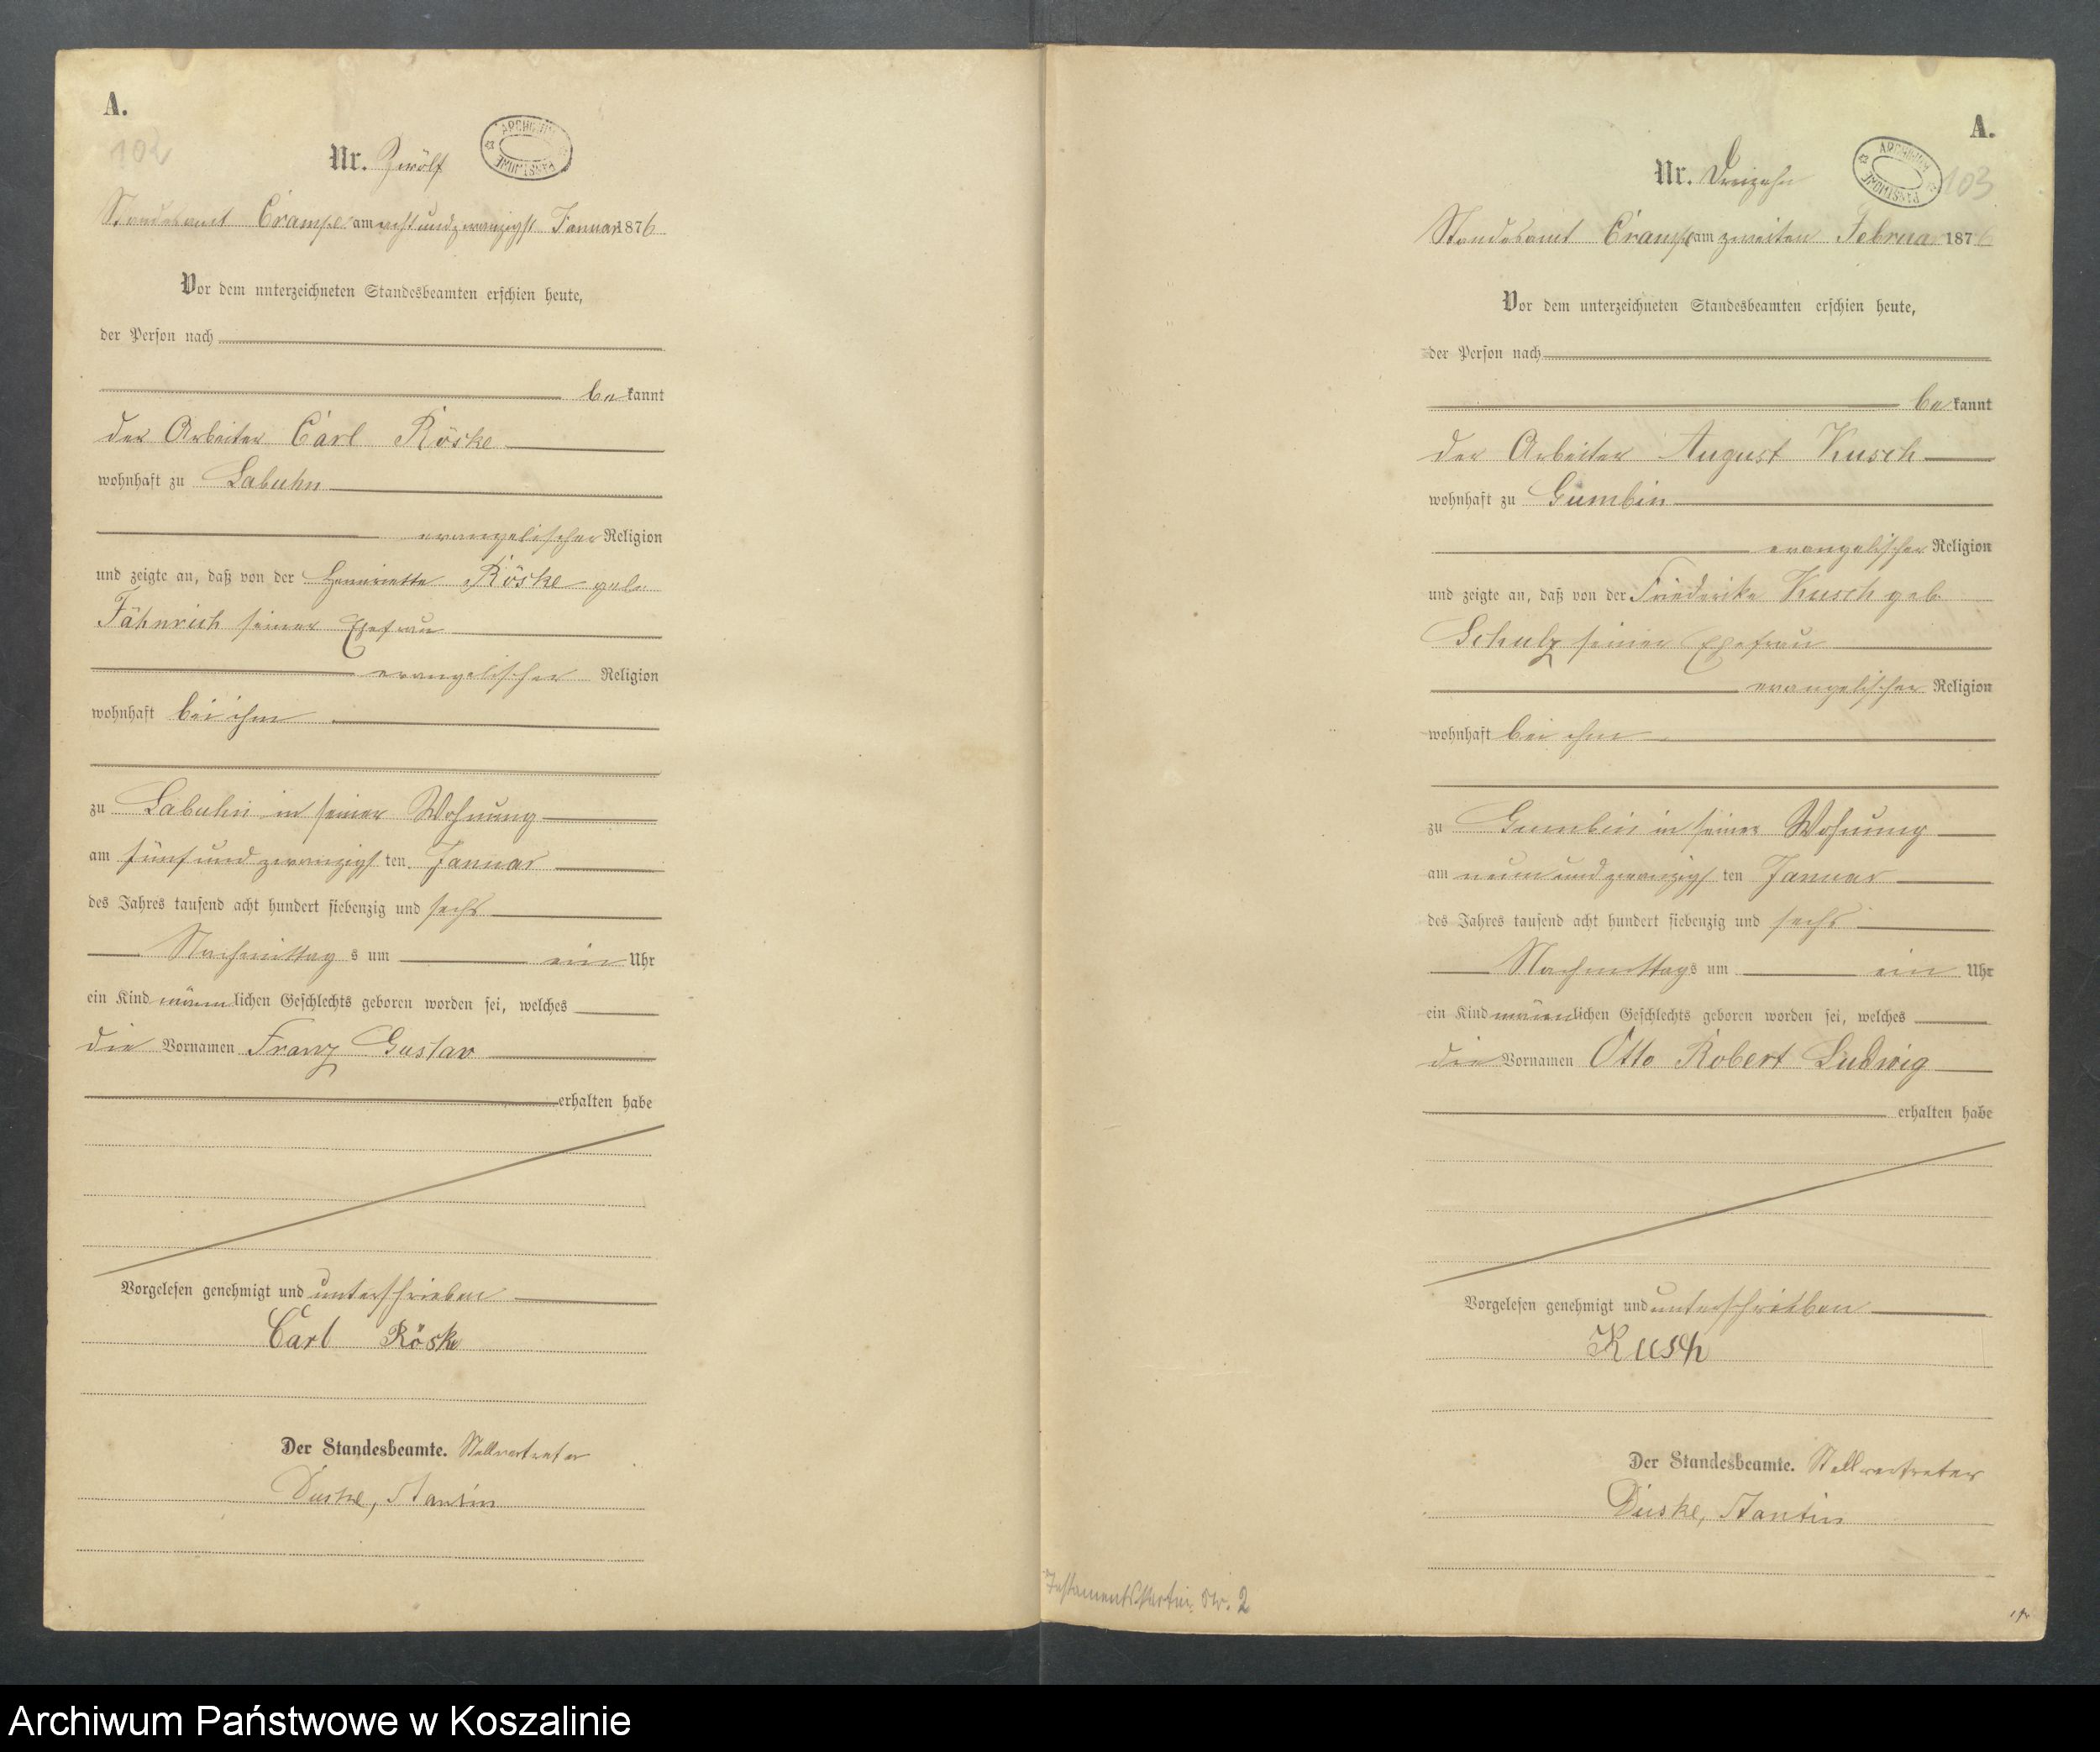 A.
102
Nr. Zwölf
ARCHIWUM PAŃSTWOWE
Standesamt Crampe am achtundzwanzigst Januar 1876
Vor dem unterzeichneten Standesbeamten erschien heute,
der Person nach
be kannt
der Arbeiter Carl Röske
wohnhaft zu Labuhn
evangelischer Religion
und zeigte an, daß von der Henriette Röske geb.
Fähnrich seiner Ehefrau
evangelischer Religion
wohnhaft bei ihm
zu Labuhn in seiner Wohnung
am fünfundzwanzigsten Januar
des Jahres tausend acht hundert siebenzig und sechs
Nachmittags um ein Uhr
ein Kind männlichen Geschlechts geboren worden sei, welches
die Vornamen Franz Gustav
erhalten habe
Vorgelesen genehmigt und unterschrieben
Carl Röske
Der Standesbeamte. Stellvertreter
Duske, Stantin
A.
103
Nr. Dreizehn
ARCHIWUM PAŃSTWOWE
Standesamt Crampe am zweiten Februar 1876
Vor dem unterzeichneten Standesbeamten erschien heute,
der Person nach
be kannt
der Arbeiter August Kusch
wohnhaft zu Gumbin
evangelischer Religion
und zeigte an, daß von der Friederike Kusch geb.
Schulz seiner Ehefrau
evangelischer Religion
wohnhaft bei ihm
zu Gumbin in seiner Wohnung
am neunundzwanzigsten Januar
des Jahres tausend acht hundert siebenzig und sechs
Nachmittags um ein Uhr
ein Kind männlichen Geschlechts geboren worden sei, welches
die Vornamen Otto Robert Ludwig
erhalten habe
Vorgelesen genehmigt und unterschrieben
Kusch
Der Standesbeamte. Stellvertreter
Duske, Stantin
Testamentskartei Nr. 2
Archiwum Państwowe w Koszalinie